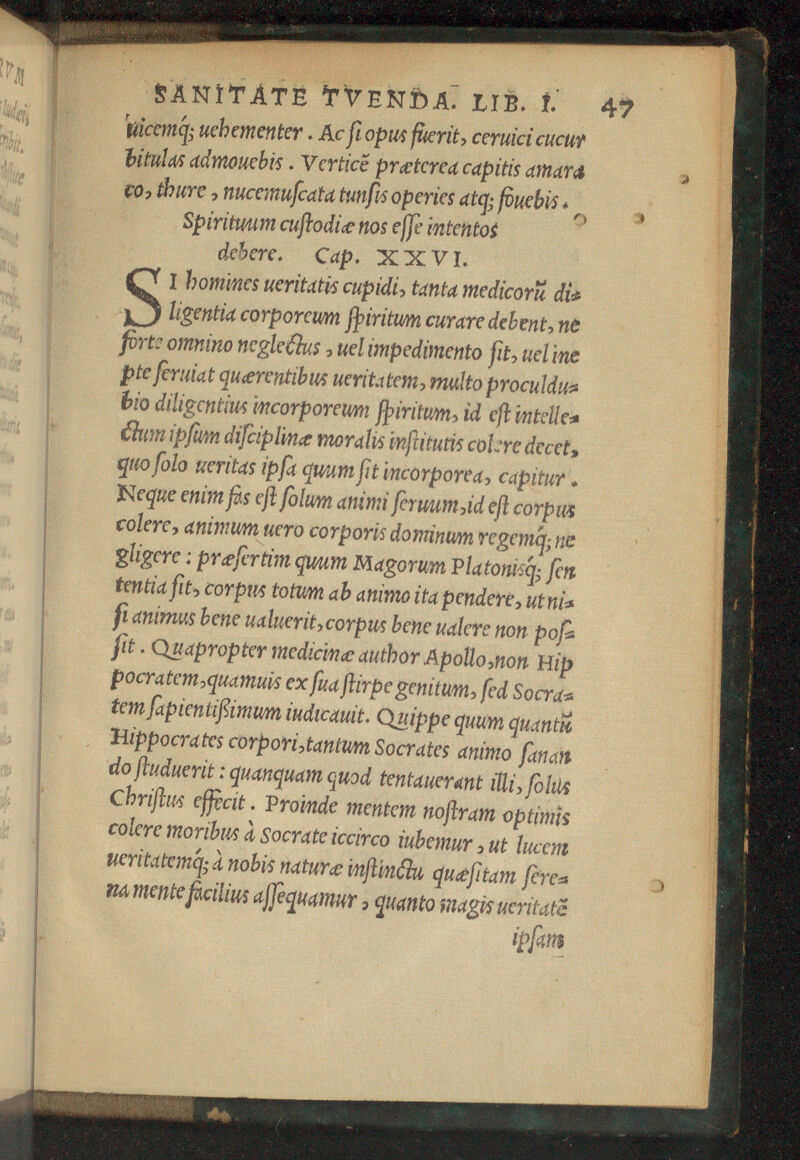 SANITATE TVENDA. LIB. I. 47
uicemq; uehementer. Ac si opus fuerit, ceruici cucur
bitulas admouebis. Verticē præterea capitis amara
co, thure, nucemuscata tunsis operies atq; fouebis.
Spirituum custodiæ nos esse intentos
debere. Cap. XXVI.
SI homines ueritatis cupidi, tanta medicorū di=
ligentia corporeum spiritum curare debent, ne
forte omnino neglectus, uel impedimento sit, uel ine
pte seruiat quærentibus ueritatem, multo proculdu=
bio diligentius incorporeum spiritum, id est intelle=
ctum ipsum disciplinæ moralis institutis colere decet,
quo solo ueritas ipsa quum sit incorporea, capitur.
Neque enim fas est solum animi seruum, id est corpus
colere, animum uero corporis dominum regemq; ne
gligere: præsertim quum Magorum Platonisq; sen
tentia sit, corpus totum ab animo ita pendere, ut ni=
si animus bene ualuerit, corpus bene ualere non pos=
sit. Quapropter medicinæ author Apollo, non Hip
pocratem, quamuis ex sua stirpe genitum, sed Socra=
tem sapientißimum iudicauit. Quippe quum quantū
Hippocrates corpori, tantum Socrates animo sanan
do studuerit: quanquam quod tentauerant illi, solus
Christus effecit. Proinde mentem nostram optimis
colere moribus à Socrate iccirco iubemur, ut lucem
ueritatemq; à nobis naturæ instinctu quæsitam sere=
na mente facilius assequamur, quanto magis ueritatē
ipsam